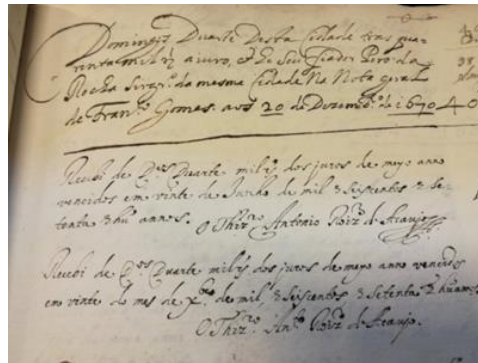 Domingos Duarte desta Cidade tras qua-
renta mil rs a juro, he seu fiador Pero da
Rocha da mesma Cidade Na Nota geral
de Fran.co Gomes. aos 20 de Dezemb.ro de 1670 40
Recebi de D.os Duarte mil rs dos juros de meyo anno
vencidos em vinte de Junho de mil e seiscentos e se-
tenta e hũ annos. O Thez.ro Antonio Roiz de Araujo
Recebi de D.os Duarte mil rs dos juros de meyo anno vencidos
em vinte do mes de X.bro de mil, e seiscentos e setenta e hũ
O Thez.ro Ant.o Roiz de Araujo.